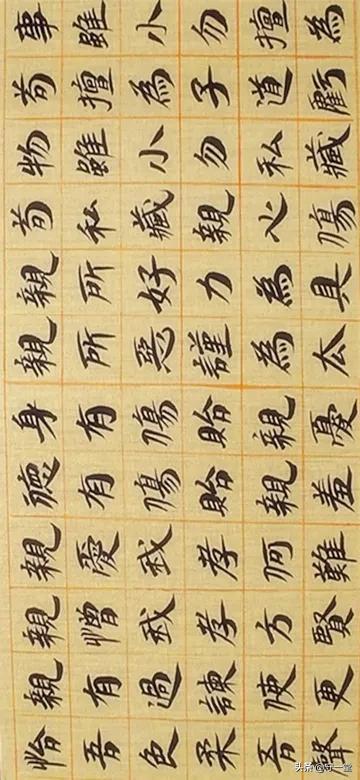 事雖小勿擅為
苟擅為子道虧
物雖小勿私藏
苟私藏親心傷
親所好力為具
親所惡謹為去
身有傷貽親憂
德有傷貽親羞
親愛我孝何難
親憎我孝方賢
親有過諫使更
怡吾色柔吾聲
头条@守一堂